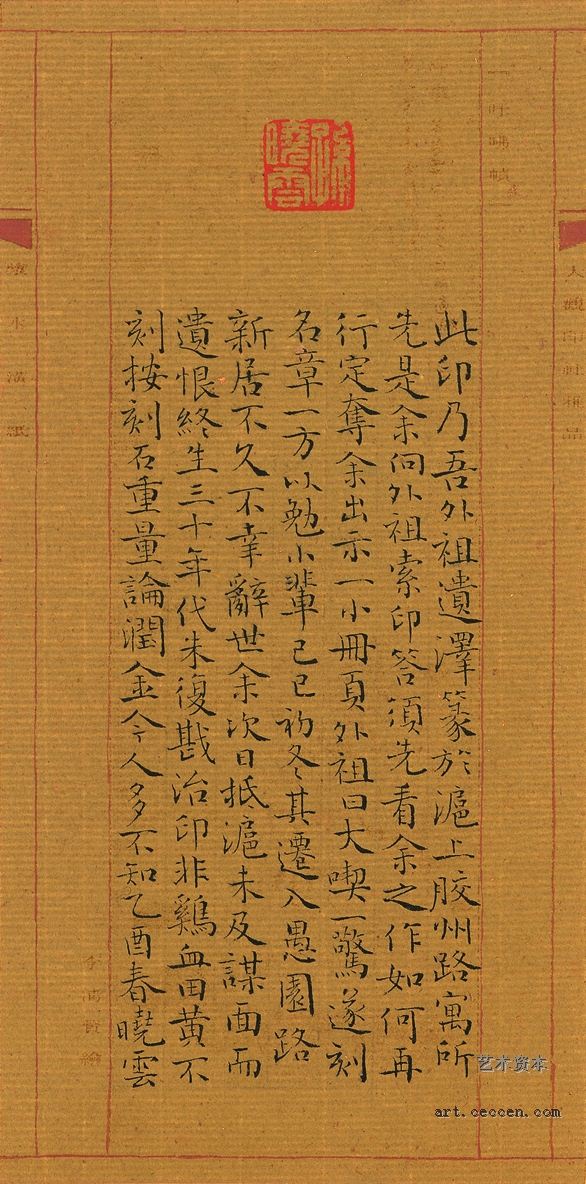 孫曉雲
此印乃吾外祖遺澤篆於滬上胶州路寓所
先是余向外祖索印答須先看余之作如何再
行定奪余出示一小冊頁外祖曰大喫一驚遂刻
名章一方以勉小輩己巳初冬其遷入愚園路
新居不久不幸辭世余次日抵滬未及謀面而
遺恨終生三十年代朱復戡治印非鷄血田黄不
刻按刻石重量論潤金今人多不知乙酉春曉雲
艺术资本
art.ceccen.com